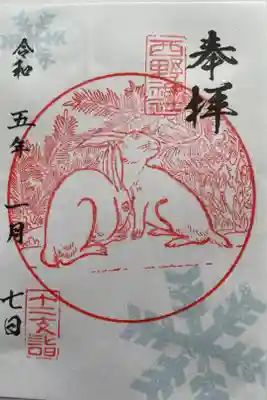 奉拝
西野神社
令和 五年 一月 七日
十二支詣